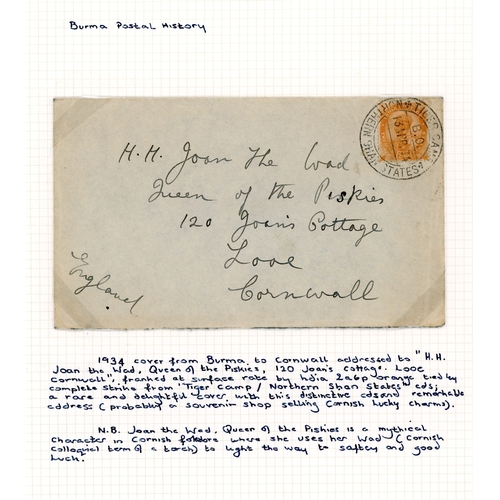 Burma Postal History
TIGER CAMP
B.O.
NORTHERN SHAN STATES
H.H. Joan the Wad
Queen of the Piskies
120 Joan's Cottage
Looe
Cornwall
England
1934 cover from Burma to Cornwall addressed to "H.H.
Joan the Wad, Queen of the Piskies, 120 Joan's Cottage. Looe
Cornwall", franked at surface rate by India 2a6p orange tied by
complete strike from 'Tiger Camp / Northern Shan States' cds;
a rare and delightful cover with this distinctive cds and remarkable
address (probably a souvenir shop selling Cornish lucky charms).
N.B. Joan the Wad, Queen of the Piskies is a mythical
character in Cornish folklore where she uses her Wad (Cornish
colloquial term of a torch) to light the way to saftey and good
luck.